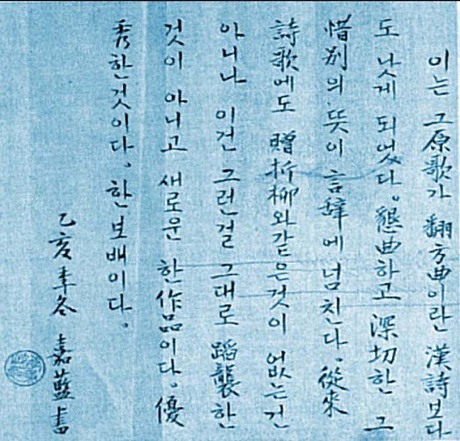 이는 그 原歌가 翻方曲이란 漢詩보다
도 낫게 되었다。懇曲하고 深切한 그
惜別의 뜻이 言辭에 넘친다。從來
詩歌에도 贈折柳와 같은것이 없는건
아니나 이건 그런걸 그대로 蹈襲한
것이 아니고 새로운 한 作品이다。優
秀한것이다。한 보배이다。
乙亥季冬 嘉藍書